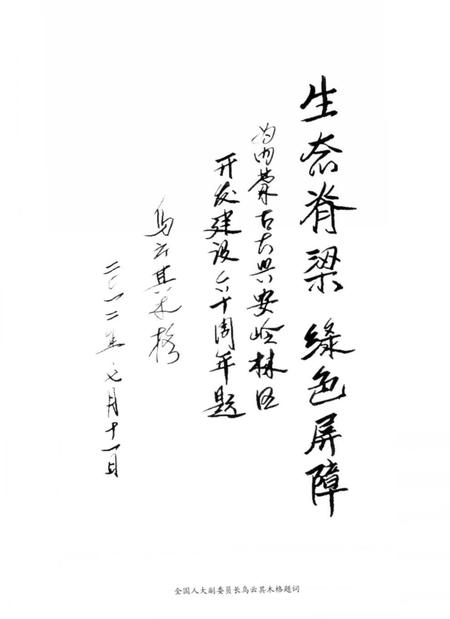 生态脊梁 绿色屏障
为内蒙古大兴安岭林区
开发建设六十周年题
乌云其木格
二〇一二年七月十一日
全国人大副委员长乌云其木格题词